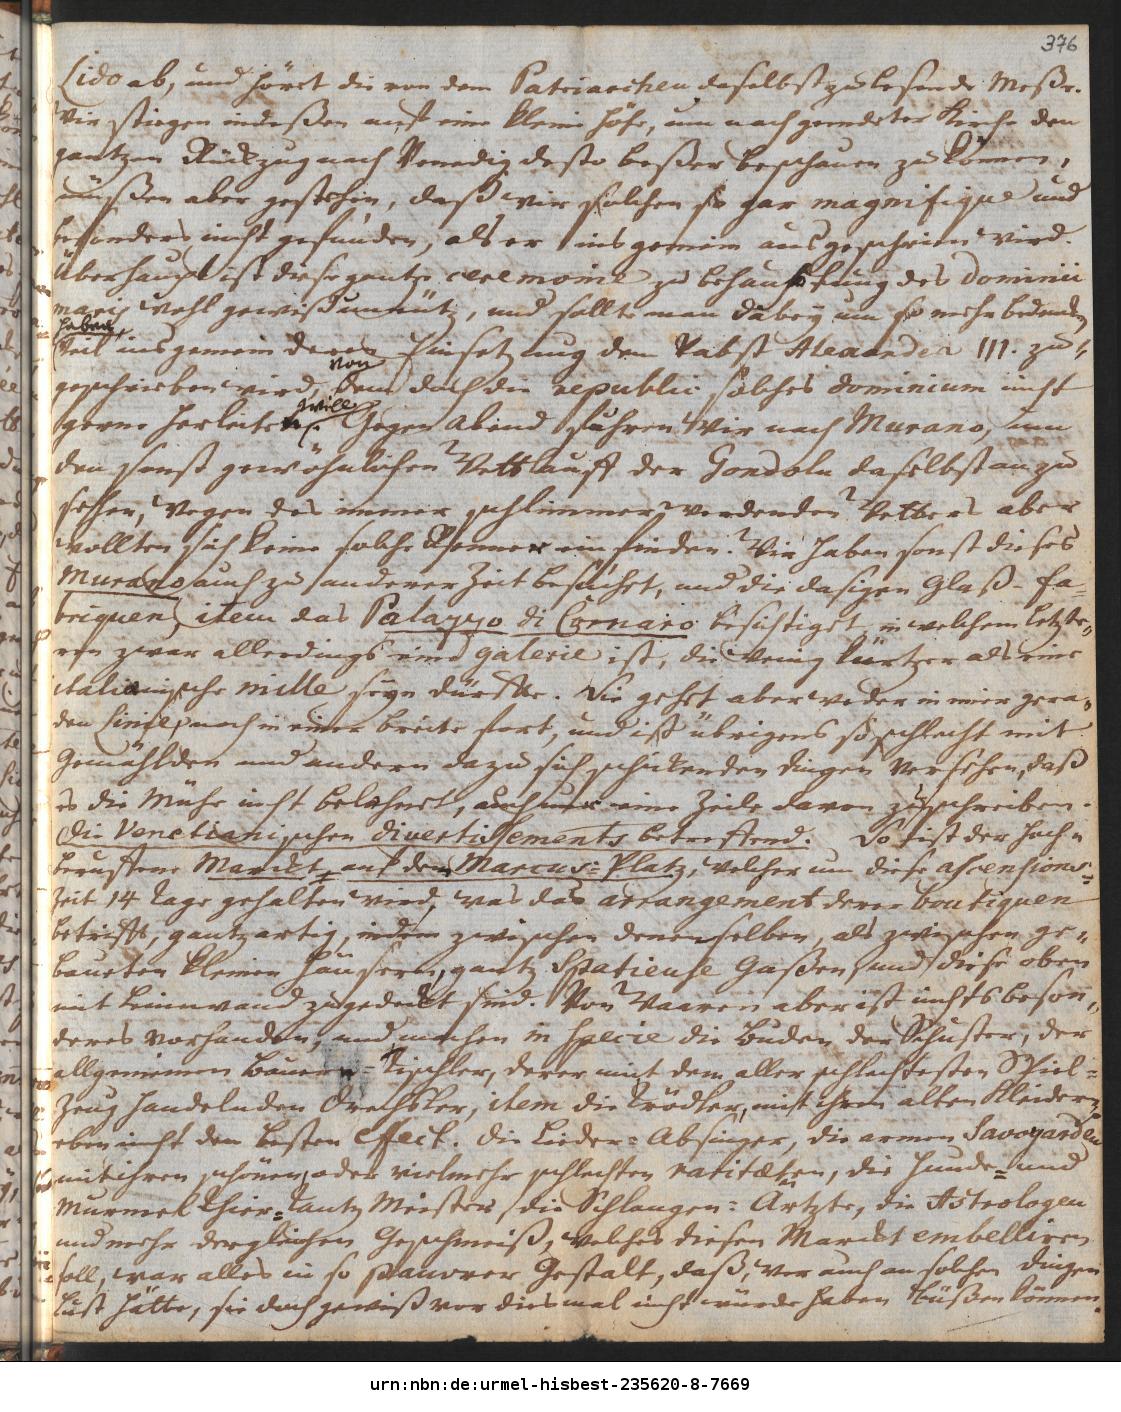 376
Lido ab, und höret die von dem Patriarchen daselbst zu lesende Meße.
Wir stiegen indeßen auf eine kleine Höhe, um nach geendeter Kirche den
gantzen Rückzug nach Venedig desto beßer beschauen zu können,
müßen aber gestehen, daß wir solchen so gar magnifique und
besonders nicht gefunden, als er ins gemein ausgeschrien wird.
Überhaupt ist diese gantze ceremonie zu behaubtung des Dominii
maris wohl gewiß unnütz, und sollte man dabey um so mehr bedenken
haben,
weil insgemein deren Einsetzung dem Pabst Alexander III. zu-
von
geschrieben wird, dem doch die republic solches dominium nicht
will
gerne herleiten. Gegen Abend fuhren wir nach Murano, um
den sonst gewöhnlichen Wettlauff der Gondoln daselbst anzu
sehen, wegen des immer schlimmer werdenden Wetters aber
wollten sich keine solche Renner einfinden. Wir haben sonst dieses
Murano auch zu anderer Zeit besuchet, und die dasigen Glaß-Fa-
briquen, item das Palazzo di Cornaro besichtiget, in welchem letzte-
ren zwar allerdings eine galerie ist, die wenig kürtzer als eine
italiänische mille seyn dürffte. Sie gehet aber weder in einer gera-
den Linie, noch in einer breite fort, und ist übrigens so schlecht mit
Gemählden und andern dazu sich schickenden dingen versehen, daß
es die Mühe nicht belohnet, auch nur eine Zeile davon zu schreiben.
Die Venetianischen divertissements betreffend. So ist der hoch-
beruffene Marckt auf dem Marcus-Platz, welcher um diese ascensions-
Zeit 14 Tage gehalten wird, was das arrangement derer boutiquen
betrifft, gantz artig, indem zwischen denenselben, als zwischen ge-
baueten kleinen Häusern, gantz spatieuse Gaßen, und diese oben
mit Leinwand zugedeckt sind. Von Waaren aber ist nichts beson-
deres vorhanden, und machen in specie die Buden der Schuster, der
allgemeinen Bauern-Tischler, derer mit dem aller schlechtesten Spiel-
zeug handelnden Drechsler, item die Trödler, mit ihren alten Kleidern,
eben nicht den besten effect. Die Lieder-Absinger, die armen Savoyarden
mit ihren schönen, oder vielmehr schlechten raritæten, die Hunde- und
Murmelthier-Tantz Meister, die Schlangen-Ärtzte, die Astrologen
und mehr dergleichen Geschmeiß, welches diesen Marckt embelliren
soll, war alles in so pauvrer Gestalt, daß, wer auch an solchen dingen
Lust hätte, sie doch gewiß vor diesmal nicht würde haben büßen können.
urn:nbn:de:urmel-hisbest-235620-8-7669